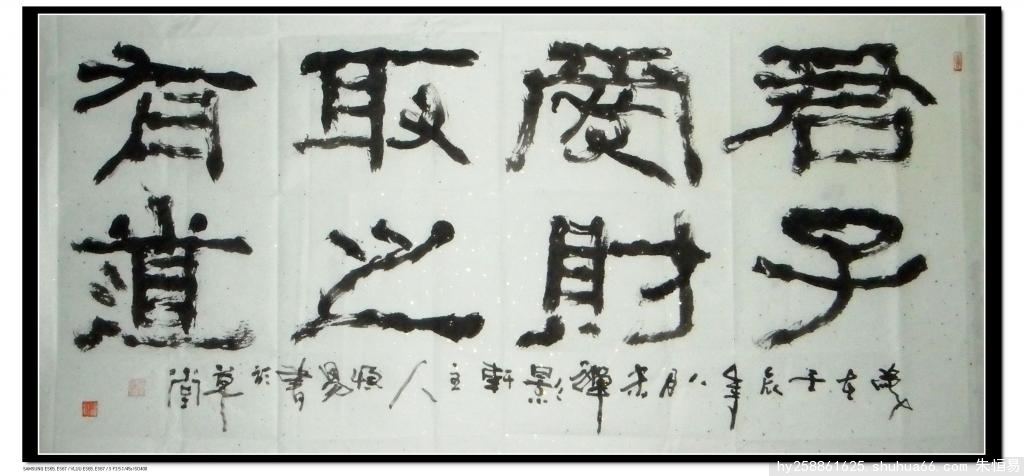 君子
爱财
取之
有道
歲在壬辰年八月朱禅影軒主人恒易書於草堂
SAMSUNG ES65, ES67 / VLUU ES65, ES67 / S F3.5 1/45s ISO400
hy258861625.shuhua66.com 朱恒易